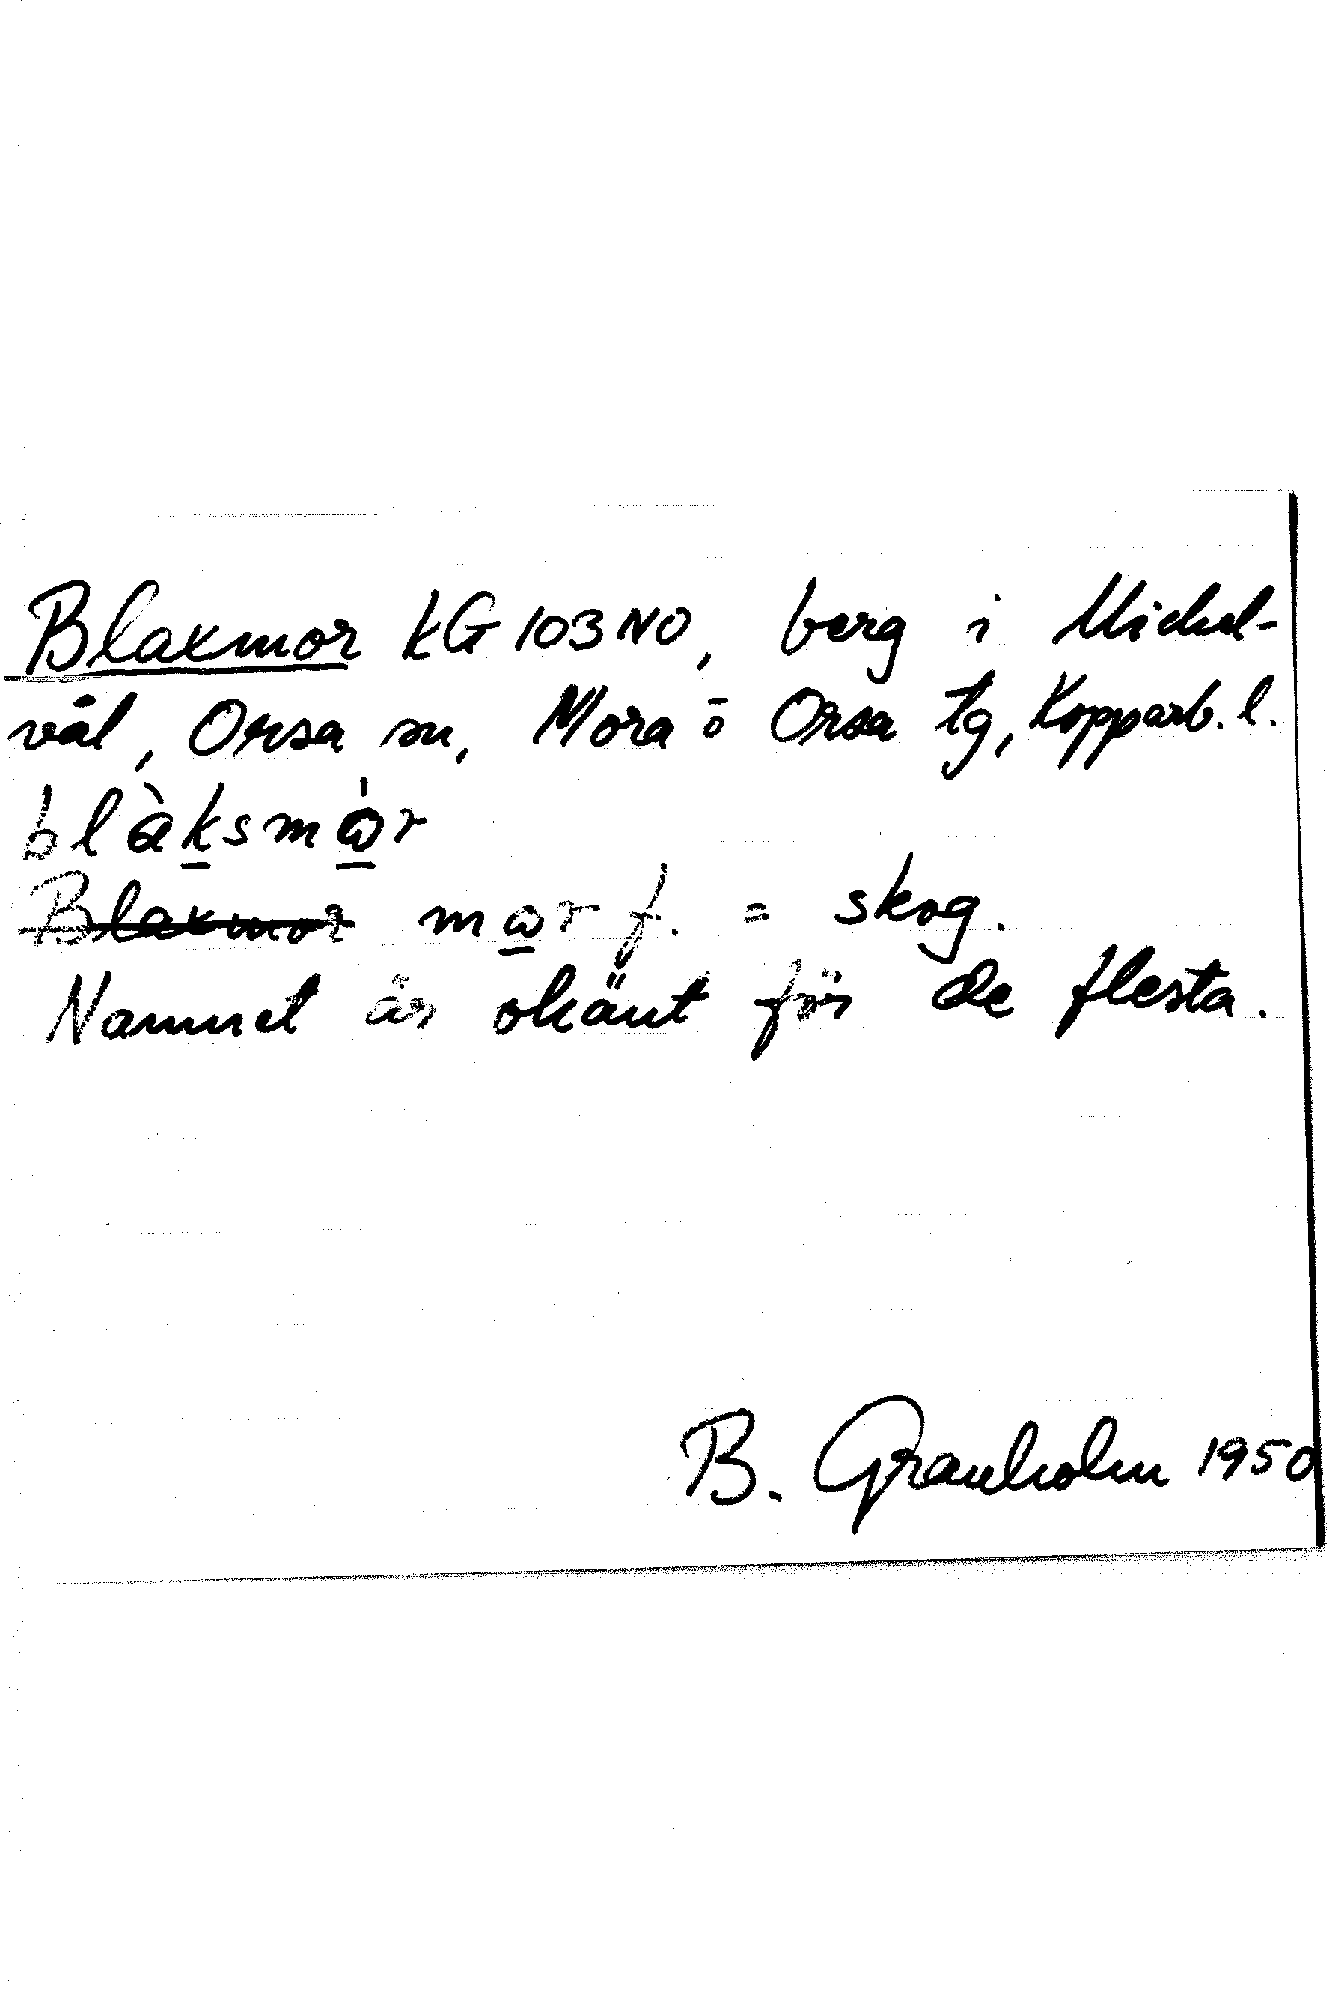 Blaxmor KG 103 NO, berg i Michel-
vål, Orsa sn, Mora o Orsa tg, Kopparb. l.
blàksmὼr
Blaxmor mωr f. = skog.
Namnet är okänt för de flesta.
B. Granholm 1950